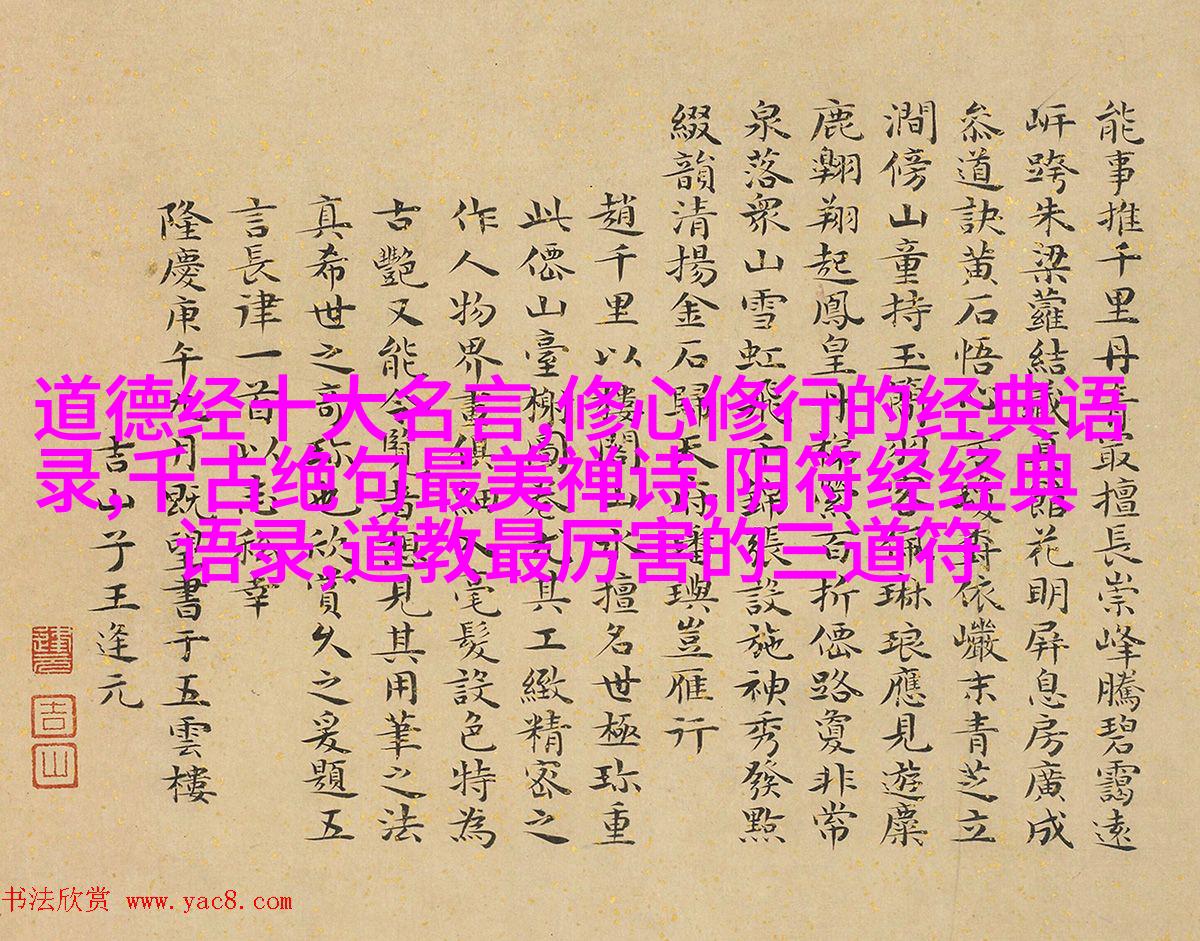 能事推千里丹青最擅長崇峰騰碧靄遠
岍跨朱梁蘿結花明屏息房廣成
叅道訣黃石悟依巘末青芝立
澗傍山童持玉琳琅應見遊麋
鹿翱翔起鳳皇丹百折僊路夐非常
泉落衆山雪虹飛張設施神秀發點
綴韻清揚金石歸天府璠璵豈雁行
趙千里以樓閣山水擅名世極珎重
此僊山臺榭圖尤其工緻精密之
作人物界畫俱細入毫髮設色特為
古艷又能令閱者想見其用筆之法
真希世之奇珎也欣賞久之爰題五
言長律一首以志稱幸
隆慶庚午九月既望書于五雲樓
吉山子王逢元
道德经十大名言,修心修行的经典语
录,千古绝句最美禅诗,阴符经经典
语录,道教最厉害的三道符
吉山
书法欣赏 www.yac8.com